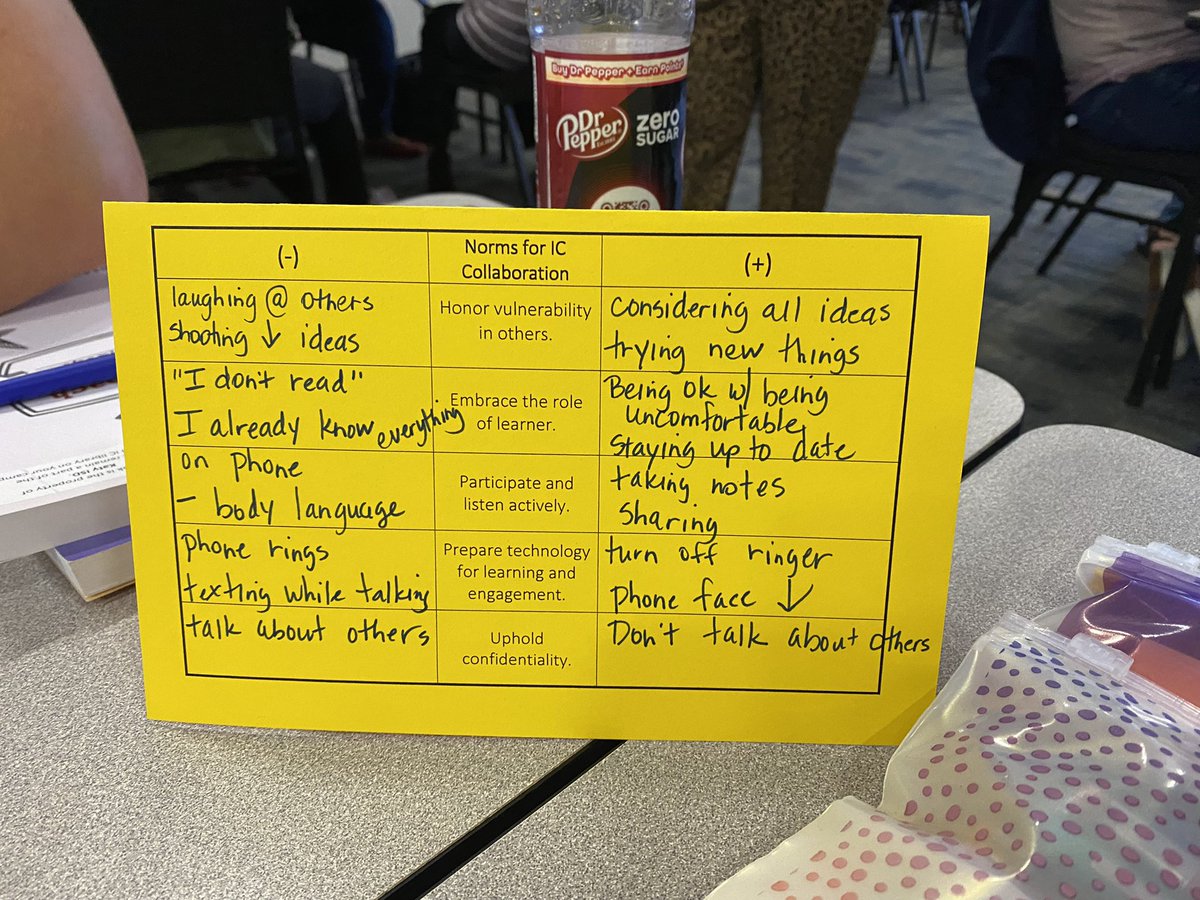 Buy Dr Pepper + Earn Points!
Dr Pepper
zero
SUGAR
(-)
Norms for IC
Collaboration
(+)
laughing @ others
shooting ↓ ideas
Honor vulnerability
in others.
considering all ideas
trying new things
"I don't read"
I already know everything
Embrace the role
of learner.
Being ok w/ being
uncomfortable,
staying up to date
on phone
- body language
Participate and
listen actively.
taking notes
sharing
phone rings
texting while talking
Prepare technology
for learning and
engagement.
turn off ringer
phone face ↓
talk about others
Uphold
confidentiality.
Don't talk about others
is the property of
Katy ISD
remain a part of the
IC library on your